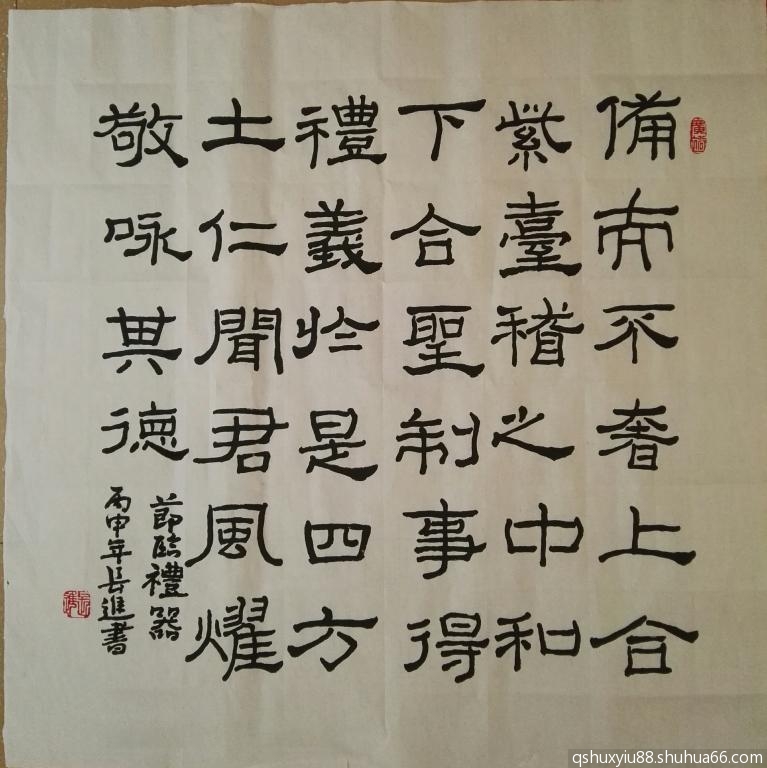 備而不奢上合
紫臺稽之中和
下合聖制事得
禮義於是四方
土仁聞君風燿
敬咏其德
節臨禮器
丙申年長進書
qshuxyiu88.shuhua66.com